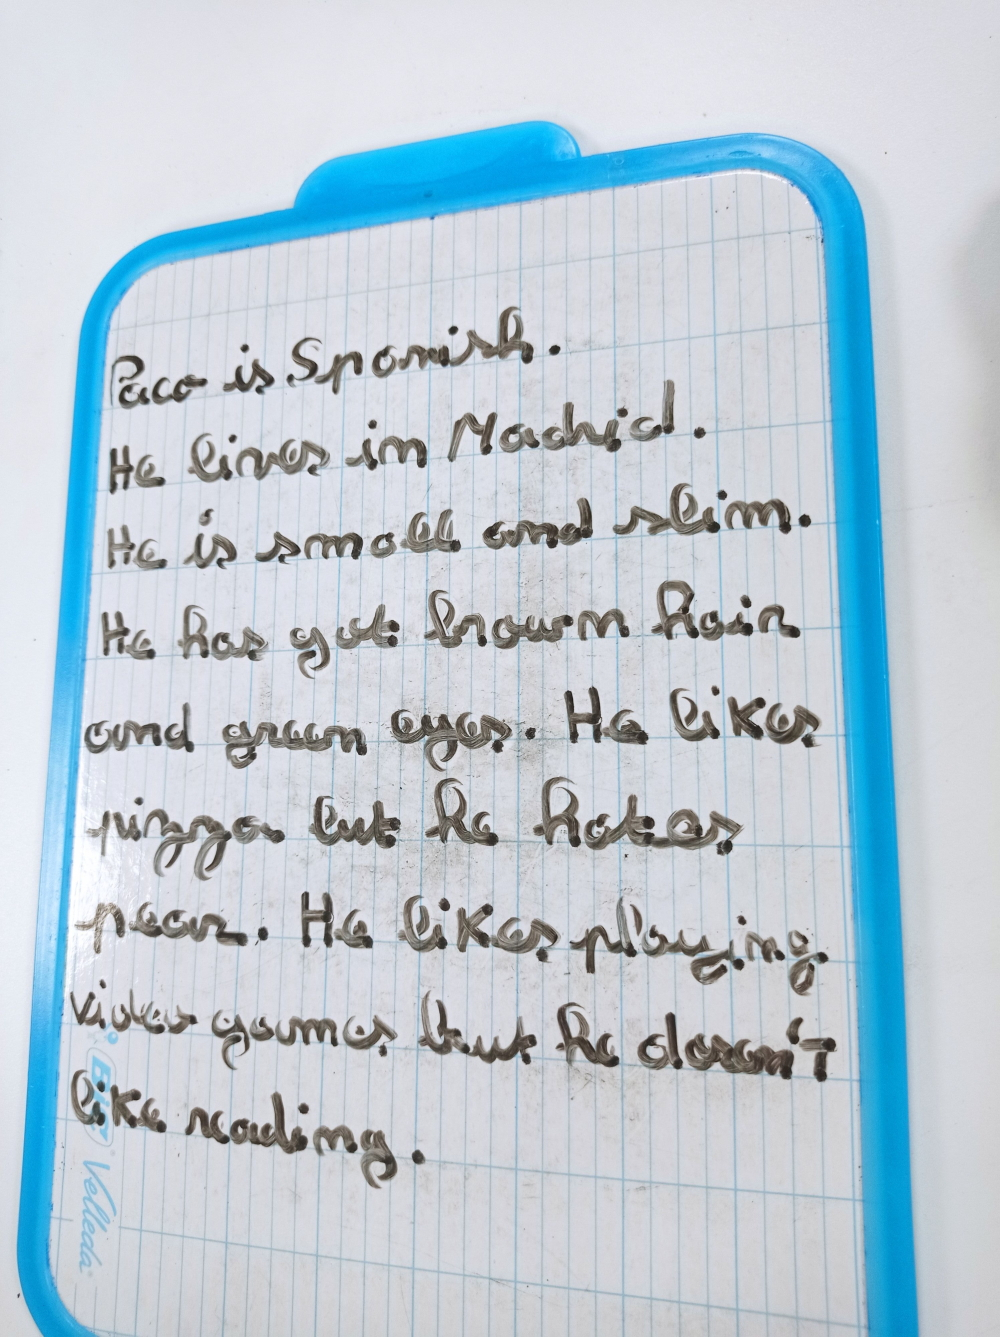 Paco is Spanish.
He lives in Madrid.
He is small and slim.
He has got brown hair
and green eyes. He likes
pizza but he hates
pear. He likes playing
video games but he doesn't
like reading.
BIC Velleda